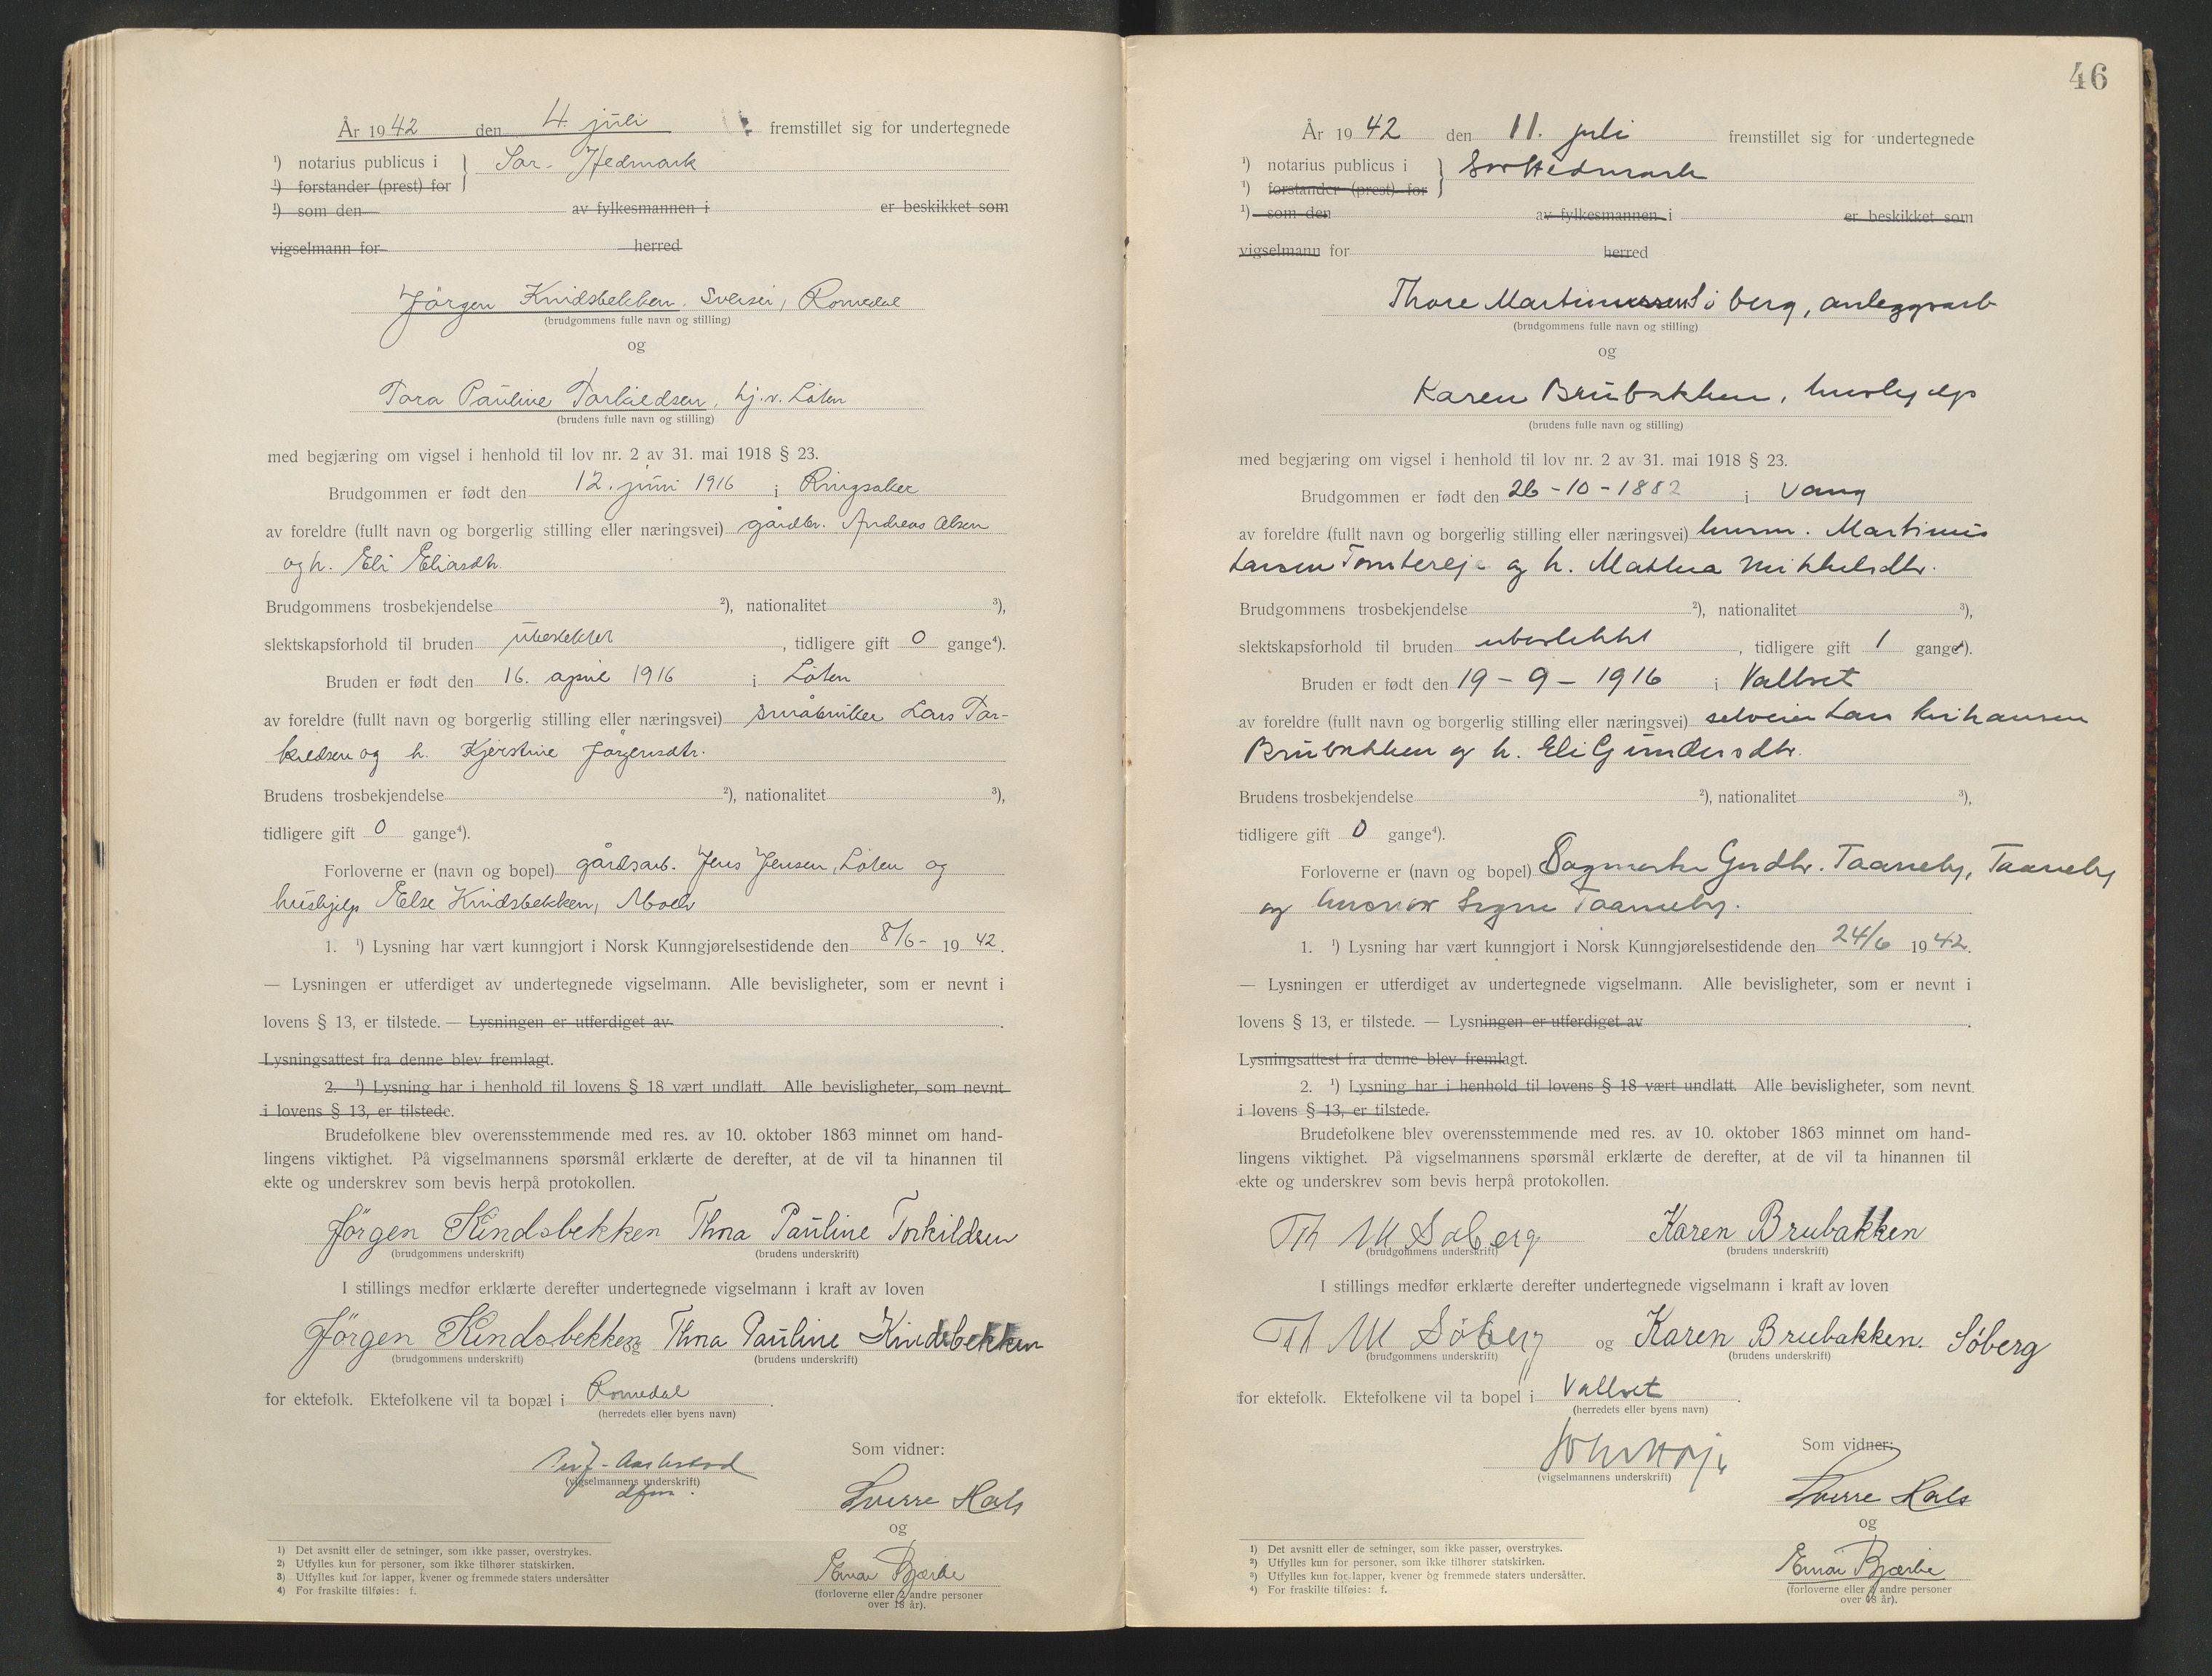 År 1942 den 4. juli fremstillet sig for undertegnede
¹) notarius publicus i } Sør-Hedmark
¹) forstander (prest) for
¹) som den av fylkesmannen i er beskikket som
vigselmann for herred
Jörgen Kindsbekken, sveiser, Romedal
(brudgommens fulle navn og stilling)
og
Tora Pauline Torkildsen, hj.v. Löten
(brudens fulle navn og stilling)
med begjæring om vigsel i henhold til lov nr. 2 av 31. mai 1918 § 23.
Brudgommen er født den 12. juni 1916 i Ringsaker
av foreldre (fullt navn og borgerlig stilling eller næringsvei) gårdbr. Andreas Olsen
og h. Eli Eliasdtr.
Brudgommens trosbekjendelse ²), nationalitet ³),
slektskapsforhold til bruden ubeslektet, tidligere gift 0 gange⁴).
Bruden er født den 16. april 1916 i Löten
av foreldre (fullt navn og borgerlig stilling eller næringsvei) småbruker Lars Tor-
kildsen og h. Kjerstine Jörgensdtr.
Brudens trosbekjendelse ²), nationalitet ³),
tidligere gift 0 gange⁴).
Forloverne er (navn og bopel) gårdsarb. Jens Jensen, Löten og
hushjelp Else Kindsbekken, Moelv
1. ¹) Lysning har vært kunngjort i Norsk Kunngjørelsestidende den 8/6- 1942.
— Lysningen er utferdiget av undertegnede vigselmann. Alle bevisligheter, som er nevnt i
lovens § 13, er tilstede. — Lysningen er utferdiget av
Lysningsattest fra denne blev fremlagt.
2. ¹) Lysning har i henhold til lovens § 18 vært undlatt. Alle bevisligheter, som nevnt
i lovens § 13, er tilstede.
Brudefolkene blev overensstemmende med res. av 10. oktober 1863 minnet om hand-
lingens viktighet. På vigselmannens spørsmål erklærte de derefter, at de vil ta hinannen til
ekte og underskrev som bevis herpå protokollen.
Jörgen Kindsbekken Thora Pauline Torkildsen
(brudgommens underskrift) (brudens underskrift)
I stillings medfør erklærte derefter undertegnede vigselmann i kraft av loven
Jörgen Kindsbekken og Thora Pauline Kindsbekken
(brudgommens underskrift) (brudens underskrift)
for ektefolk. Ektefolkene vil ta bopæl i Romedal.
(herredets eller byens navn)
Som vidner:
(vigselmannens underskrift)
dfm.
Sverre Hals
og
Einar Bjærke
(forloverne eller 2 andre personer
over 18 år).
1) Det avsnitt eller de setninger, som ikke passer, overstrykes.
2) Utfylles kun for personer, som ikke tilhører statskirken.
3) Utfylles kun for lapper, kvener og fremmede staters undersåtter
4) For fraskilte tilføies: f.
46
År 1942 den 11. juli fremstillet sig for undertegnede
¹) notarius publicus i } Sør Hedmark
¹) forstander (prest) for
¹) som den av fylkesmannen i er beskikket som
vigselmann for herred
Thore Martinussen Söberg, anleggsarb
(brudgommens fulle navn og stilling)
og
Karen Brubakken, hushjelp
(brudens fulle navn og stilling)
med begjæring om vigsel i henhold til lov nr. 2 av 31. mai 1918 § 23.
Brudgommen er født den 26-10-1882 i Vang
av foreldre (fullt navn og borgerlig stilling eller næringsvei) husm. Martinus
Larsen Tomtereje og h. Mathea Mikkelsdtr.
Brudgommens trosbekjendelse ²), nationalitet ³),
slektskapsforhold til bruden ubeslektet, tidligere gift 1 gange⁴).
Bruden er født den 19-9-1916 i Vallset
av foreldre (fullt navn og borgerlig stilling eller næringsvei) selveier Lars
Brubakken og h. Eli Gundersdtr.
Brudens trosbekjendelse ²), nationalitet ³),
tidligere gift 0 gange⁴).
Forloverne er (navn og bopel) Taaneby, Taaneby
og husmor Signe Taaneby.
1. ¹) Lysning har vært kunngjort i Norsk Kunngjørelsestidende den 24/6 1942.
— Lysningen er utferdiget av undertegnede vigselmann. Alle bevisligheter, som er nevnt i
lovens § 13, er tilstede. — Lysningen er utferdiget av
Lysningsattest fra denne blev fremlagt.
2. ¹) Lysning har i henhold til lovens § 18 vært undlatt. Alle bevisligheter, som nevnt
i lovens § 13, er tilstede.
Brudefolkene blev overensstemmende med res. av 10. oktober 1863 minnet om hand-
lingens viktighet. På vigselmannens spørsmål erklærte de derefter, at de vil ta hinannen til
ekte og underskrev som bevis herpå protokollen.
Th M Söberg Karen Brubakken
(brudgommens underskrift) (brudens underskrift)
I stillings medfør erklærte derefter undertegnede vigselmann i kraft av loven
Th M Söberg og Karen Brubakken. Söberg
(brudgommens underskrift) (brudens underskrift)
for ektefolk. Ektefolkene vil ta bopel i Vallset.
(herredets eller byens navn)
Som vidner:
(vigselmannens underskrift)
Sverre Hals
og
Einar Bjærke
(forloverne eller 2 andre personer
over 18 år).
1) Det avsnitt eller de setninger, som ikke passer, overstrykes.
2) Utfylles kun for personer, som ikke tilhører statskirken.
3) Utfylles kun for lapper, kvener og fremmede staters undersåtter.
4) For fraskilte tilføies: f.